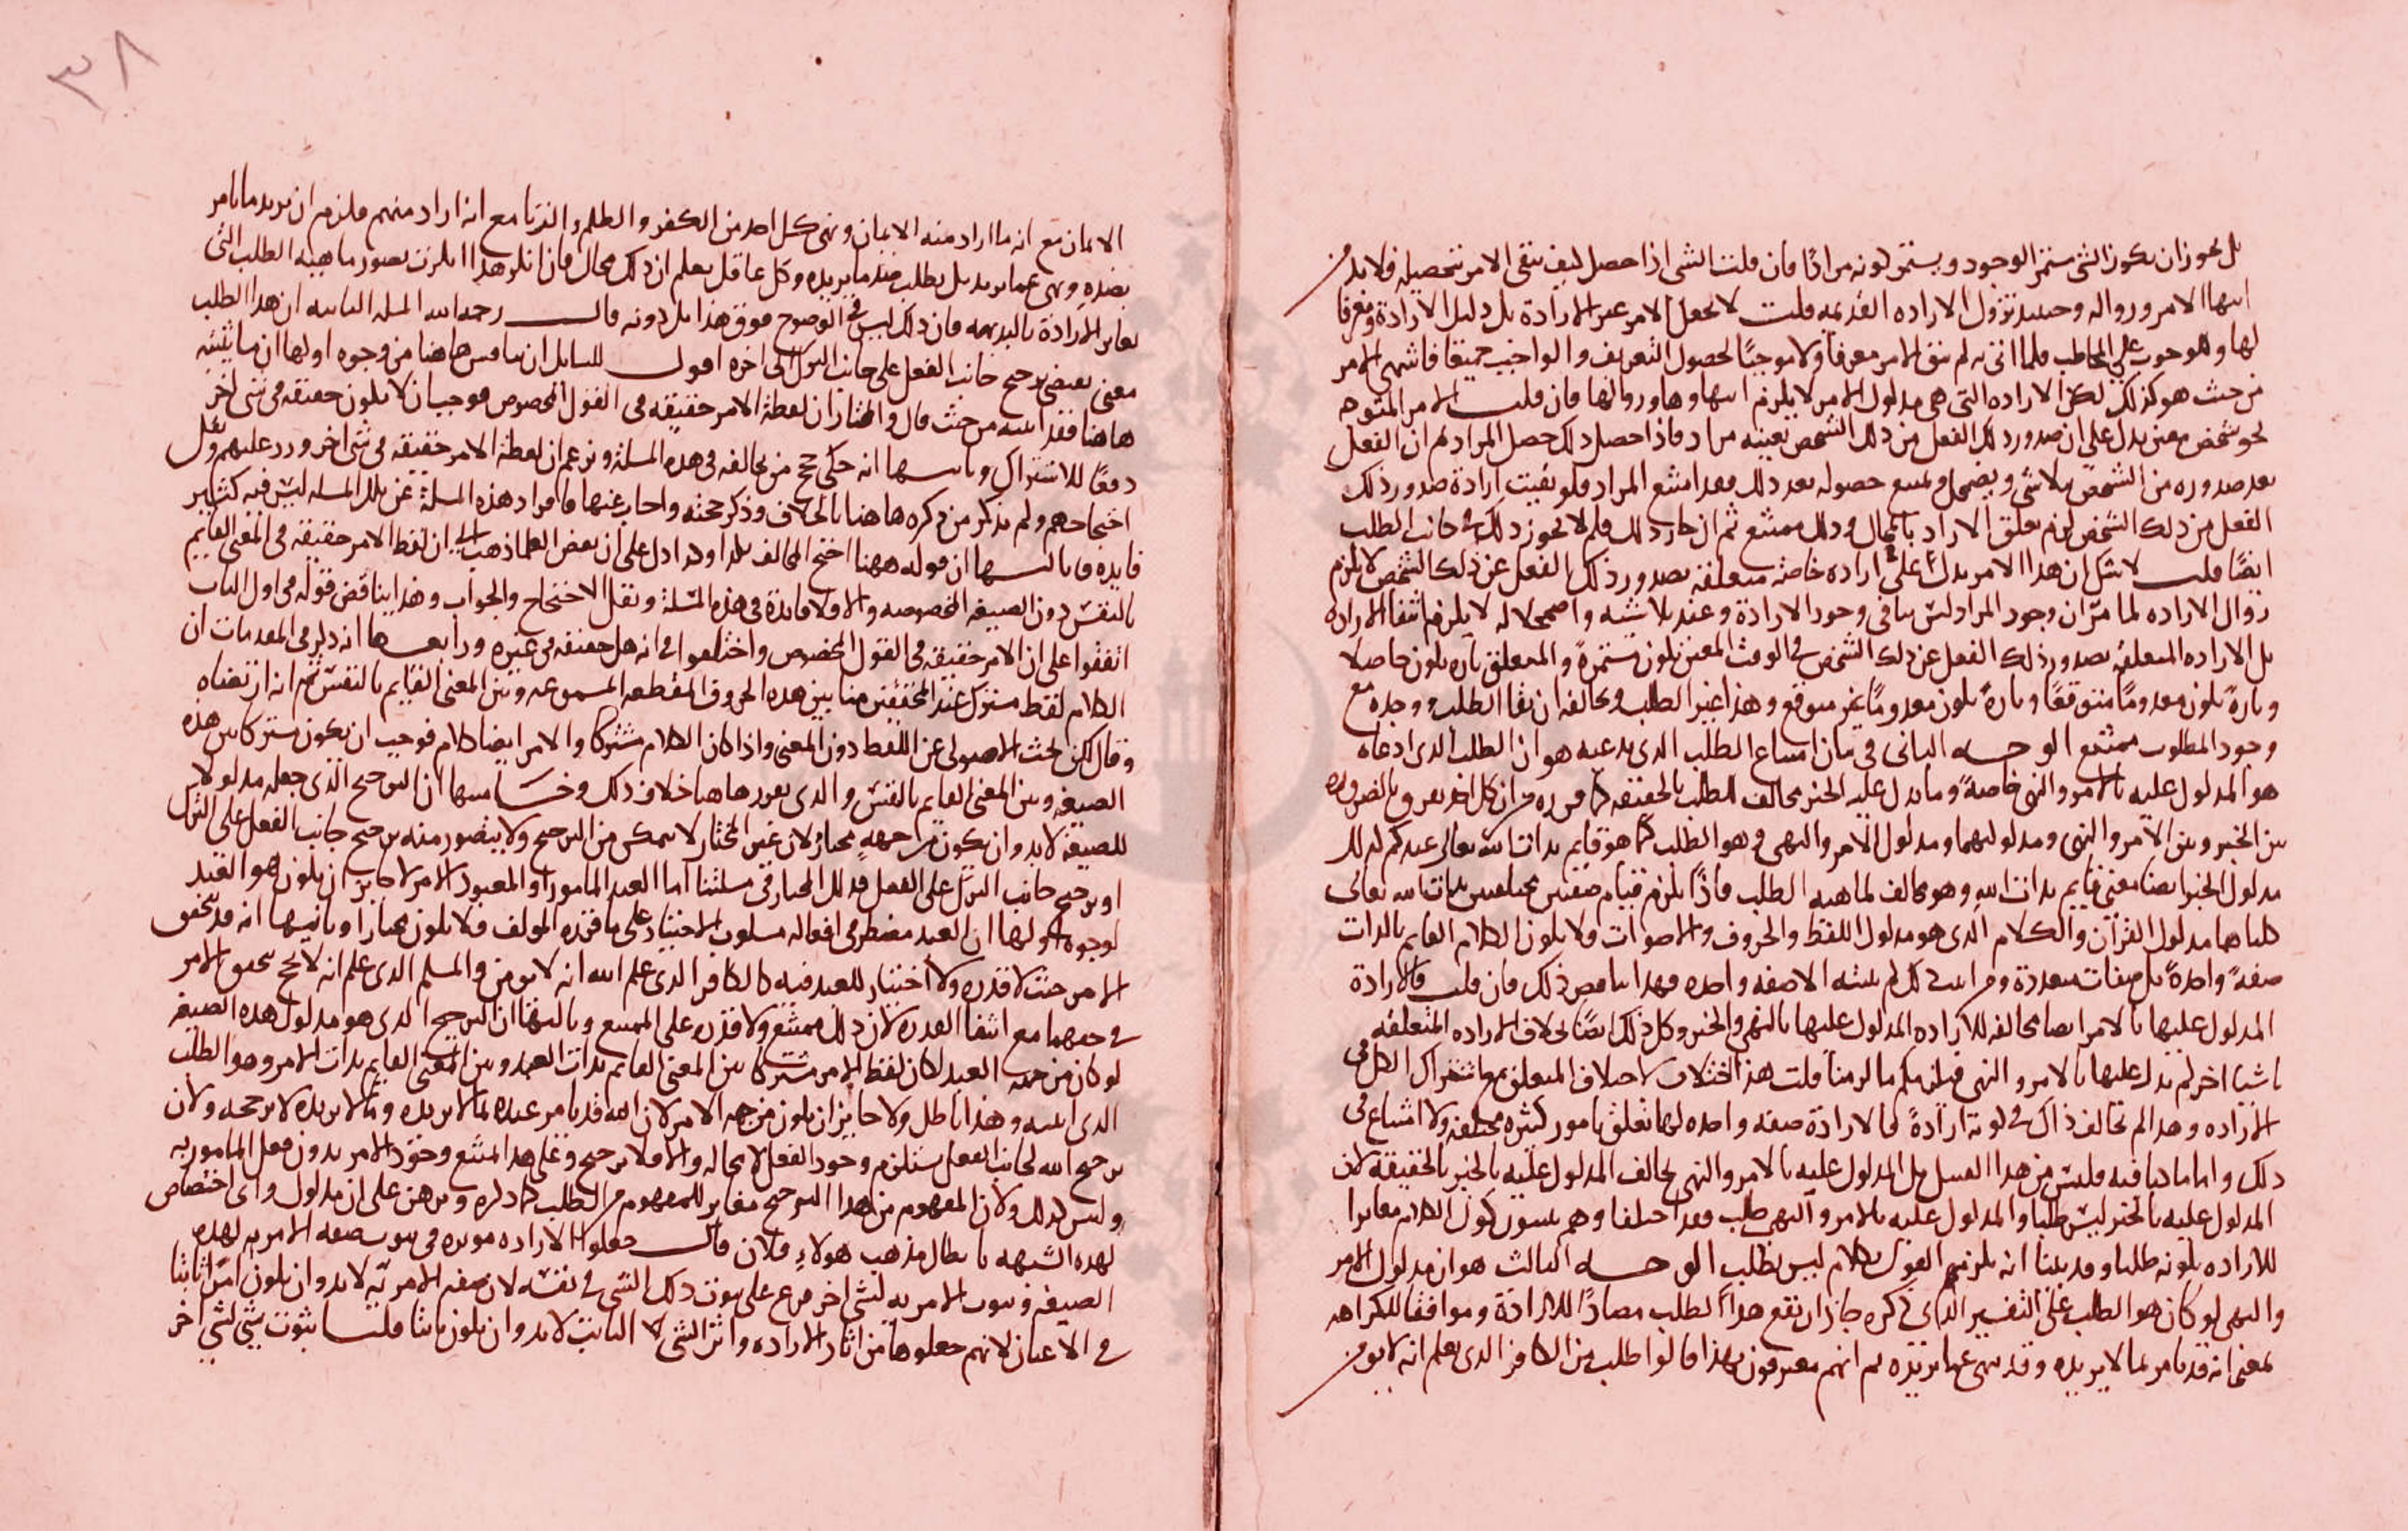 بل يجوز ان يكون الشي مستمر الوجود ويستمر كونه مرادًا فان قلت الشي اذا حصل كيف يبقى الامر بتحصيله فلا بد من
انتها الامر وزواله وحينئذ تزول الاراده القديمه قلت لا نجعل الامر عين الارادة بل دليل الارادة ومعرفا
لها وللوجوب على المخاطب فلما اتى به لم يبق الامر معرفا ولا موجبًا لحصول التعريف والواجب جميعًا فانتهى الامر
من حيث هو كذلك لكن الاراده التي هي مدلول الامر لا يلزم انتهاوها وزوالها فان قلت الامر المتوجه
نحو شخص معين يدل على ان صدور ذلك الفعل من ذلك الشخص بعينه مراد فاذا حصل ذلك حصل المراد ثم ان الفعل
بعد صدوره من الشخص يتلاشى ويضمحل ويمتنع حصوله بعد ذلك فقد امتنع المراد فلو بقيت ارادة صدور ذلك
الفعل من ذلك الشخص لزم تعلق الاراده بالمحال وذلك ممتنع ثم ان جاز ذلك فلم لا يجوز ذلك في جانب الطلب
ايضًا قلت لا شك ان هذا الامر يدل على ارادة خاصة متعلقة بصدور ذلك الفعل عن ذلك الشخص لا يلزم
زوال الاراده لما مرّ ان وجود المراد ليس ينافي وجود الارادة وعند تلاشيه واضمحلاله لا يلزم انتفا الاراده
بل الاراده المتعلقه بصدور ذلك الفعل عن ذلك الشخص في الوقت المعين يكون مستمرة والمتعلق تاره يكون حاصلا
وتارةً يكون معدومًا متوقعًا وتارةً يكون معدومًا غير متوقع وهذا غير الطلب ومخالفه ان بقا الطلب ووجده مع
وجود المطلوب ممتنع الوجـــه الثاني في بيان امتناع الطلب الذي يدعيه هو ان الطلب الذي ادعاه
هو المدلول عليه بالامر والنهي خاصةً وما يدل عليه الخبر مخالف للطلب بالحقيقه كما قرره من ان كل احد يفرق بالضروره
بين الخبر وبين الامر والنهي ومدلوليهما ومدلول الامر والنهي وهو الطلب كما هو قايم بذات الله تعالى عندكم كذلك
مدلول الخبر ايضا معنى قايم بذات الله وهو مخالف لماهيه الطلب فاذًا يلزم قيام صفتين مختلفتين بذات الله تعالى
كلتاهما مدلول القرآن والكلام الذي هو مدلول اللفظ والحروف والاصوات فلا يكون الكلام القايم بالذات
صفةً واحدةً بل صفات متعددة ومن اثبت ذلك لم يثبته الا صفه واحده فهذا يناقض ذلك فان قلت فالارادة
المدلول عليها بالامر ايضا مخالفه للاراده المدلول عليها بالنهي والخبر وكل ذلك ايضًا بخلاف الاراده المتعلقه
باشيا اخر لم يدل عليها بالامر والنهي فيلزمكم ما لزمنا قلت هذا اختلاف لاختلاف المتعلق مع اشتراك الكل في
الاراده وهذا لم يخالف ذاك في كونه ارادةً فالارادة صفه واحده لها تعلق بامور كثيره مختلفه ولا امتناع في
ذلك واما ما نحن فيه فليس من هذا القبيل بل المدلول عليه بالامر والنهي يخالف المدلول عليه بالخبر بالحقيقة لان
المدلول عليه بالخبر ليس طلبا والمدلول عليه بالامر والنهي طلب فقد اختلفا وهم يثبتون كون الكلام مغايرا
للاراده بكونه طلبا وقد بينا انه يلزمهم القول بكلام ليس بطلب الوجـــه الثالث هو ان مدلول الامر
والنهي لو كان هو الطلب على التفسير الذي ذكره جاز ان يقع هذا الطلب مضادًا للارادة وموافقا للكراهه
بمعنى انه قد يامر بما لا يريده وقد ينهى عما يريده ثم انهم معترفون بهذا قالوا طلب من الكافر الذي يعلم انه لا يومن
٣٨
الايمان مع انه ما اراد منه الايمان ونهى كل احد من الكفر والظلم والزنا مع انه اراد منهم فلزم ان يريد ما يامر
بضده وينهى عما يريد بل يطلب ضد ما يريده وكل عاقل يعلم ان ذلك محال فان انكر هذا انكرت تصور ماهيه الطلب التي
تغاير الارادة بالبديهه فان ذلك ليس في الوضوح فوق هذا بل دونه قال رحمه الله المسله الثانيه ان هذا الطلب
معنى يقتضي ترجيح جانب الفعل على جانب الترك الى اخره اقول للسايل ان يناقش هاهنا من وجوه اولها ان ما يثبته
هاهنا فقد اثبته من حيث قال والمختار ان لفظة الامر حقيقه في القول المخصوص فوجب ان لا يكون حقيقه في شي اخر
دفعًا للاشتراك وثانيها انه حكى حجج من يخالفه في هذه المسلة وزعم ان لفظة الامر حقيقه في شي اخر ورد عليهم ونقل
احتجاجهم ولم يذكر من ذكره هاهنا بالخلاف وذكر حجته واجاب عنها فافراد هذه المسلة عن تلك المسله ليس فيه كثير
فايده وثالثها ان قوله ههنا احتج المخالف بكذا وكذا دل على ان بعض العلما ذهب الى ان لفظ الامر حقيقه في المعنى القايم
بالنفس دون الصيغه المخصوصه والا فلا فايدة في هذه المسلة ونقل الاحتجاج والجواب وهذا يناقض قوله في اول الباب
اتفقوا على ان الامر حقيقه في القول المخصوص واختلفوا في انه هل حقيقه في غيره ورابعها انه ذكر في المقدمات ان
الكلام لفظ مشترك عند المحققين منا بين هذه الحروف المقطعه المسموعه وبين المعنى القايم بالنفس ثم انه ارتضاه
وقال لكن بحث الاصولي عن اللفظ دون المعنى واذا كان الكلام مشتركا والامر ايضا كلام فوجب ان يكون مشتركا بين هذه
الصيغه وبين المعنى القايم بالنفس والذي يقرر هاهنا خلاف ذلك وخامسها ان الترجيح الذي جعله مدلولا
للصيغة لا بد وان يكون من جهةٍ مختار لان غير المختار لا يتمكن من الترجيح ولا يتصور منه ترجيح جانب الفعل على الترك
او ترجيح جانب الترك على الفعل فذلك المختار في مسلتنا اما العبد المامور او المعبود الامر لا جايز ان يكون هو العبد
لوجوه اولها ان العبد مضطر في افعاله مسلوب الاختيار على ما قرره المولف فلا يكون مختارا وثانيها انه قد يتحقق
الامر حيث لا قدره ولا اختيار للعبد فيه كالكافر الذي علم الله انه لا يومن والمسلم الذي علم انه لا يحج تحقق الامر
في حقهما مع انتفا القدره لان ذلك ممتنع ولا قدره على الممتنع وثالثها ان الترجيح الذي هو مدلول هذه الصيغه
لو كان من جهه العبد لكان لفظ الامر مشتركا بين المعنى القايم بذات العبد وبين المعنى القايم بذات الامر وهو الطلب
الذي اثبته وهذا باطل ولا جايز ان يكون من جهه الامر لان الله قد يامر عبده بما لا يريده وما لا يريده لا يرجحه ولان
ترجيح الله لجانب الفعل يستلزم وجود الفعل لا محاله والا فلا ترجيح وعلى هذا امتنع وجود الامر بدون فعل المامور به
وليس كذلك ولان المفهوم من هذا الترجيح مغاير للمفهوم من الطلب كما ذكره وبرهن على ان مدلول واى اختصاص
لهذه الشبهه بابطال مذهب هولاء فلان قال جعلوا الاراده موثره في ثبوت صفه الامريه لهذه
الصيغه وثبوت الامريه لشي اخر فرع على ثبوت ذلك الشي في نفسه لان صفه الامريّه لا بد وان يكون امرًا ثابتا
في الاعيان لانهم جعلوها من اثار الاراده واثر الشي الثابت لا بد وان يكون ثابتا قلت ثبوت شي لشي اخر